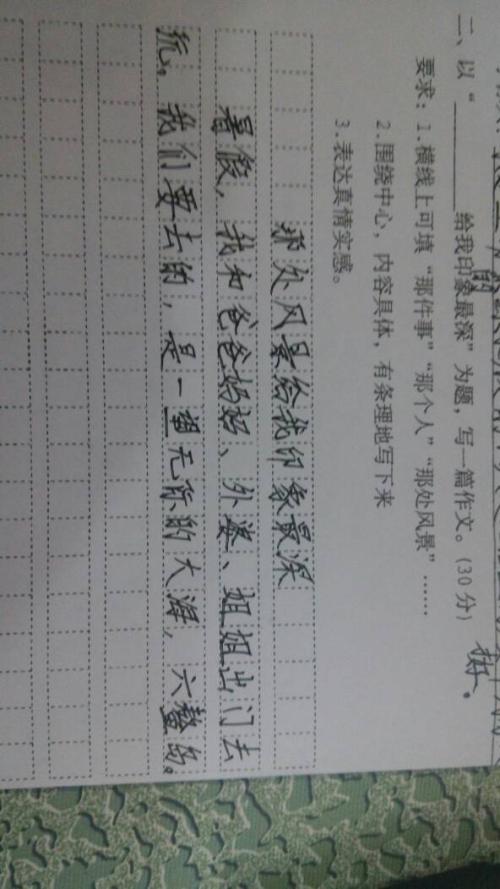 二、以“________给我印象最深”为题，写一篇作文。(30分)
要求：1.横线上可填“那件事”“那个人”“那处风景”……
2.围绕中心，内容具体，有条理地写下来
3.表达真情实感。
那处风景给我印象最深
暑假，我和爸爸妈妈、外婆、姐姐出门去
玩。我们要去的，是一望无际的大海，六鳌的。